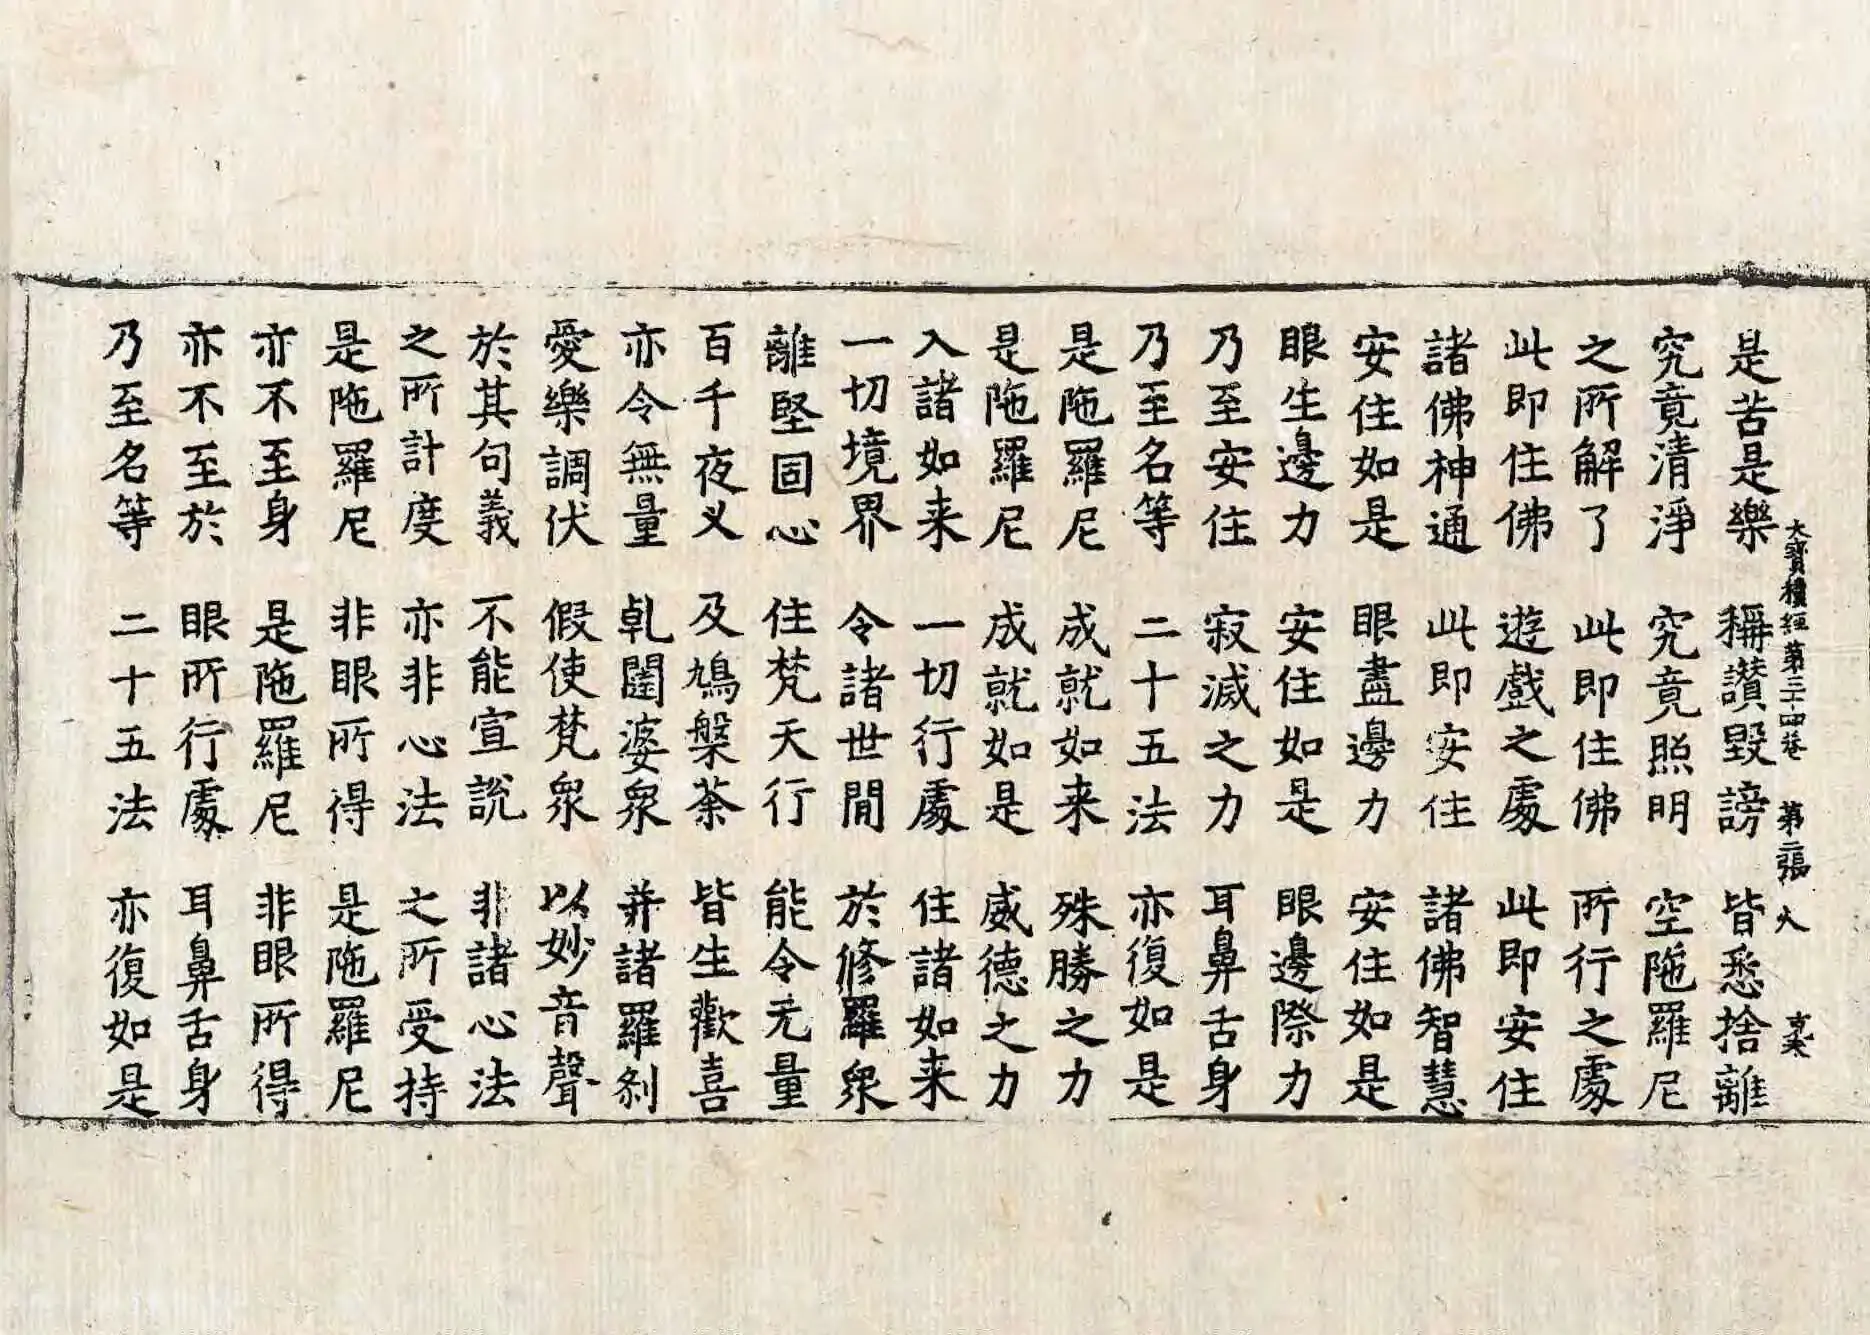 大寶積經第三十四卷 第二張 火
是苦是樂 稱讃毀謗 皆悉捨離
究竟清淨 究竟照明 空陁羅尼
之所解了 此即住佛 所行之處
此即住佛 遊戲之處 此即安住
諸佛神通 此即安住 諸佛智慧
安住如是 眼盡邊力 安住如是
眼生邊力 安住如是 眼邊際力
乃至安住 寂滅之力 耳鼻舌身
乃至名等 二十五法 亦復如是
是陁羅尼 成就如来 殊勝之力
是陁羅尼 成就如是 威德之力
入諸如来 一切行處 住諸如来
一切境界 令諸世間 於修羅衆
離堅固心 住梵天行 能令无量
百千夜义 及鳩槃荼 皆生歡喜
亦令無量 乹闥婆衆 并諸羅刹
愛樂調伏 假使梵衆 以妙音聲
於其句義 不能宣說 非諸心法
之所計度 亦非心法 之所受持
是陁羅尼 非眼所得 是陁羅尼
亦不至身 是陁羅尼 非眼所得
亦不至於 眼所行處 耳鼻舌身
乃至名等 二十五法 亦復如是